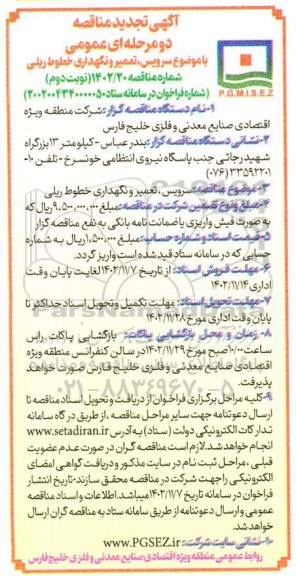 آگهی تجدید مناقصه
دو مرحله ای عمومی
با موضوع سرویس، تعمیر و نگهداری خطوط ریلی
شماره مناقصه ۱۴۰۲/۲۰ (نوبت دوم)
(شماره فراخوان در سامانه ستاد ۲۰۰۲۰۰۴۳۴۰۰۰۰۰۵۰)
P.G.M.I.S.E.Z
۱-نام دستگاه مناقصه گزار: شرکت منطقه ویژه
اقتصادی صنایع معدنی و فلزی خلیج فارس
۲-نشانی دستگاه مناقصه گزار: بندر عباس - کیلومتر ۱۳ بزرگراه
شهید رجائی جنب پاسگاه نیروی انتظامی خونسرخ - تلفن ۱۰-
۳۳۵۹۲۲۰۱ (۰۷۶)
۳-موضوع مناقصه: سرویس، تعمیر و نگهداری خطوط ریلی
۴-مبلغ و نوع تضمین شرکت در مناقصه: مبلغ ۱.۵۰۰.۰۰۰.۰۰۰ ریال که
به صورت فیش واریزی یا ضمانت نامه بانکی به نفع مناقصه گزار
۵-قیمت اسناد و شماره حساب: مبلغ ۱.۵۰۰.۰۰۰ ریال به شماره
حسابی که در سامانه ستاد قید شده است واریز گردد.
۶-مهلت فروش اسناد: از تاریخ ۱۴۰۲/۱۱/۷ لغایت پایان وقت
اداری ۱۴۰۲/۱۱/۱۴
۷-مهلت تحویل اسناد: مهلت تکمیل و تحویل اسناد حداکثر تا
پایان وقت اداری مورخ ۱۴۰۲/۱۱/۲۸
۸-زمان و محل بازگشایی پاکات: بازگشایی پاکات راس
ساعت ۱۰:۰۰ صبح مورخ ۱۴۰۲/۱۱/۲۹ در سالن کنفرانس منطقه ویژه
اقتصادی صنایع معدنی و فلزی خلیج فارس صورت خواهد
پذیرفت.
۰۲۱-۸۸۳۴۹۶۷۰-۵
۹-کلیه مراحل برگزاری فراخوان از دریافت و تحویل اسناد مناقصه تا
ارسال دعوتنامه جهت سایر مراحل مناقصه، از طریق درگاه سامانه
تدارکات الکترونیکی دولت (ستاد) به آدرس www.setadiran.ir
انجام خواهد شد. لازم است مناقصه گران در صورت عدم عضویت
قبلی، مراحل ثبت نام در سایت مذکور و دریافت گواهی امضای
الکترونیکی را جهت شرکت در مناقصه محقق سازند. تاریخ انتشار
فراخوان در سامانه تاریخ ۱۴۰۲/۱۱/۷ میباشد. اطلاعات و اسناد مناقصه
عمومی و ارسال دعوتنامه از طریق سامانه ستاد به مناقصه گران ارسال
خواهد شد.
۱۰-نشانی سایت شرکت: www.PGSEZ.ir
روابط عمومی منطقه ویژه اقتصادی صنایع معدنی و فلزی خلیج فارس